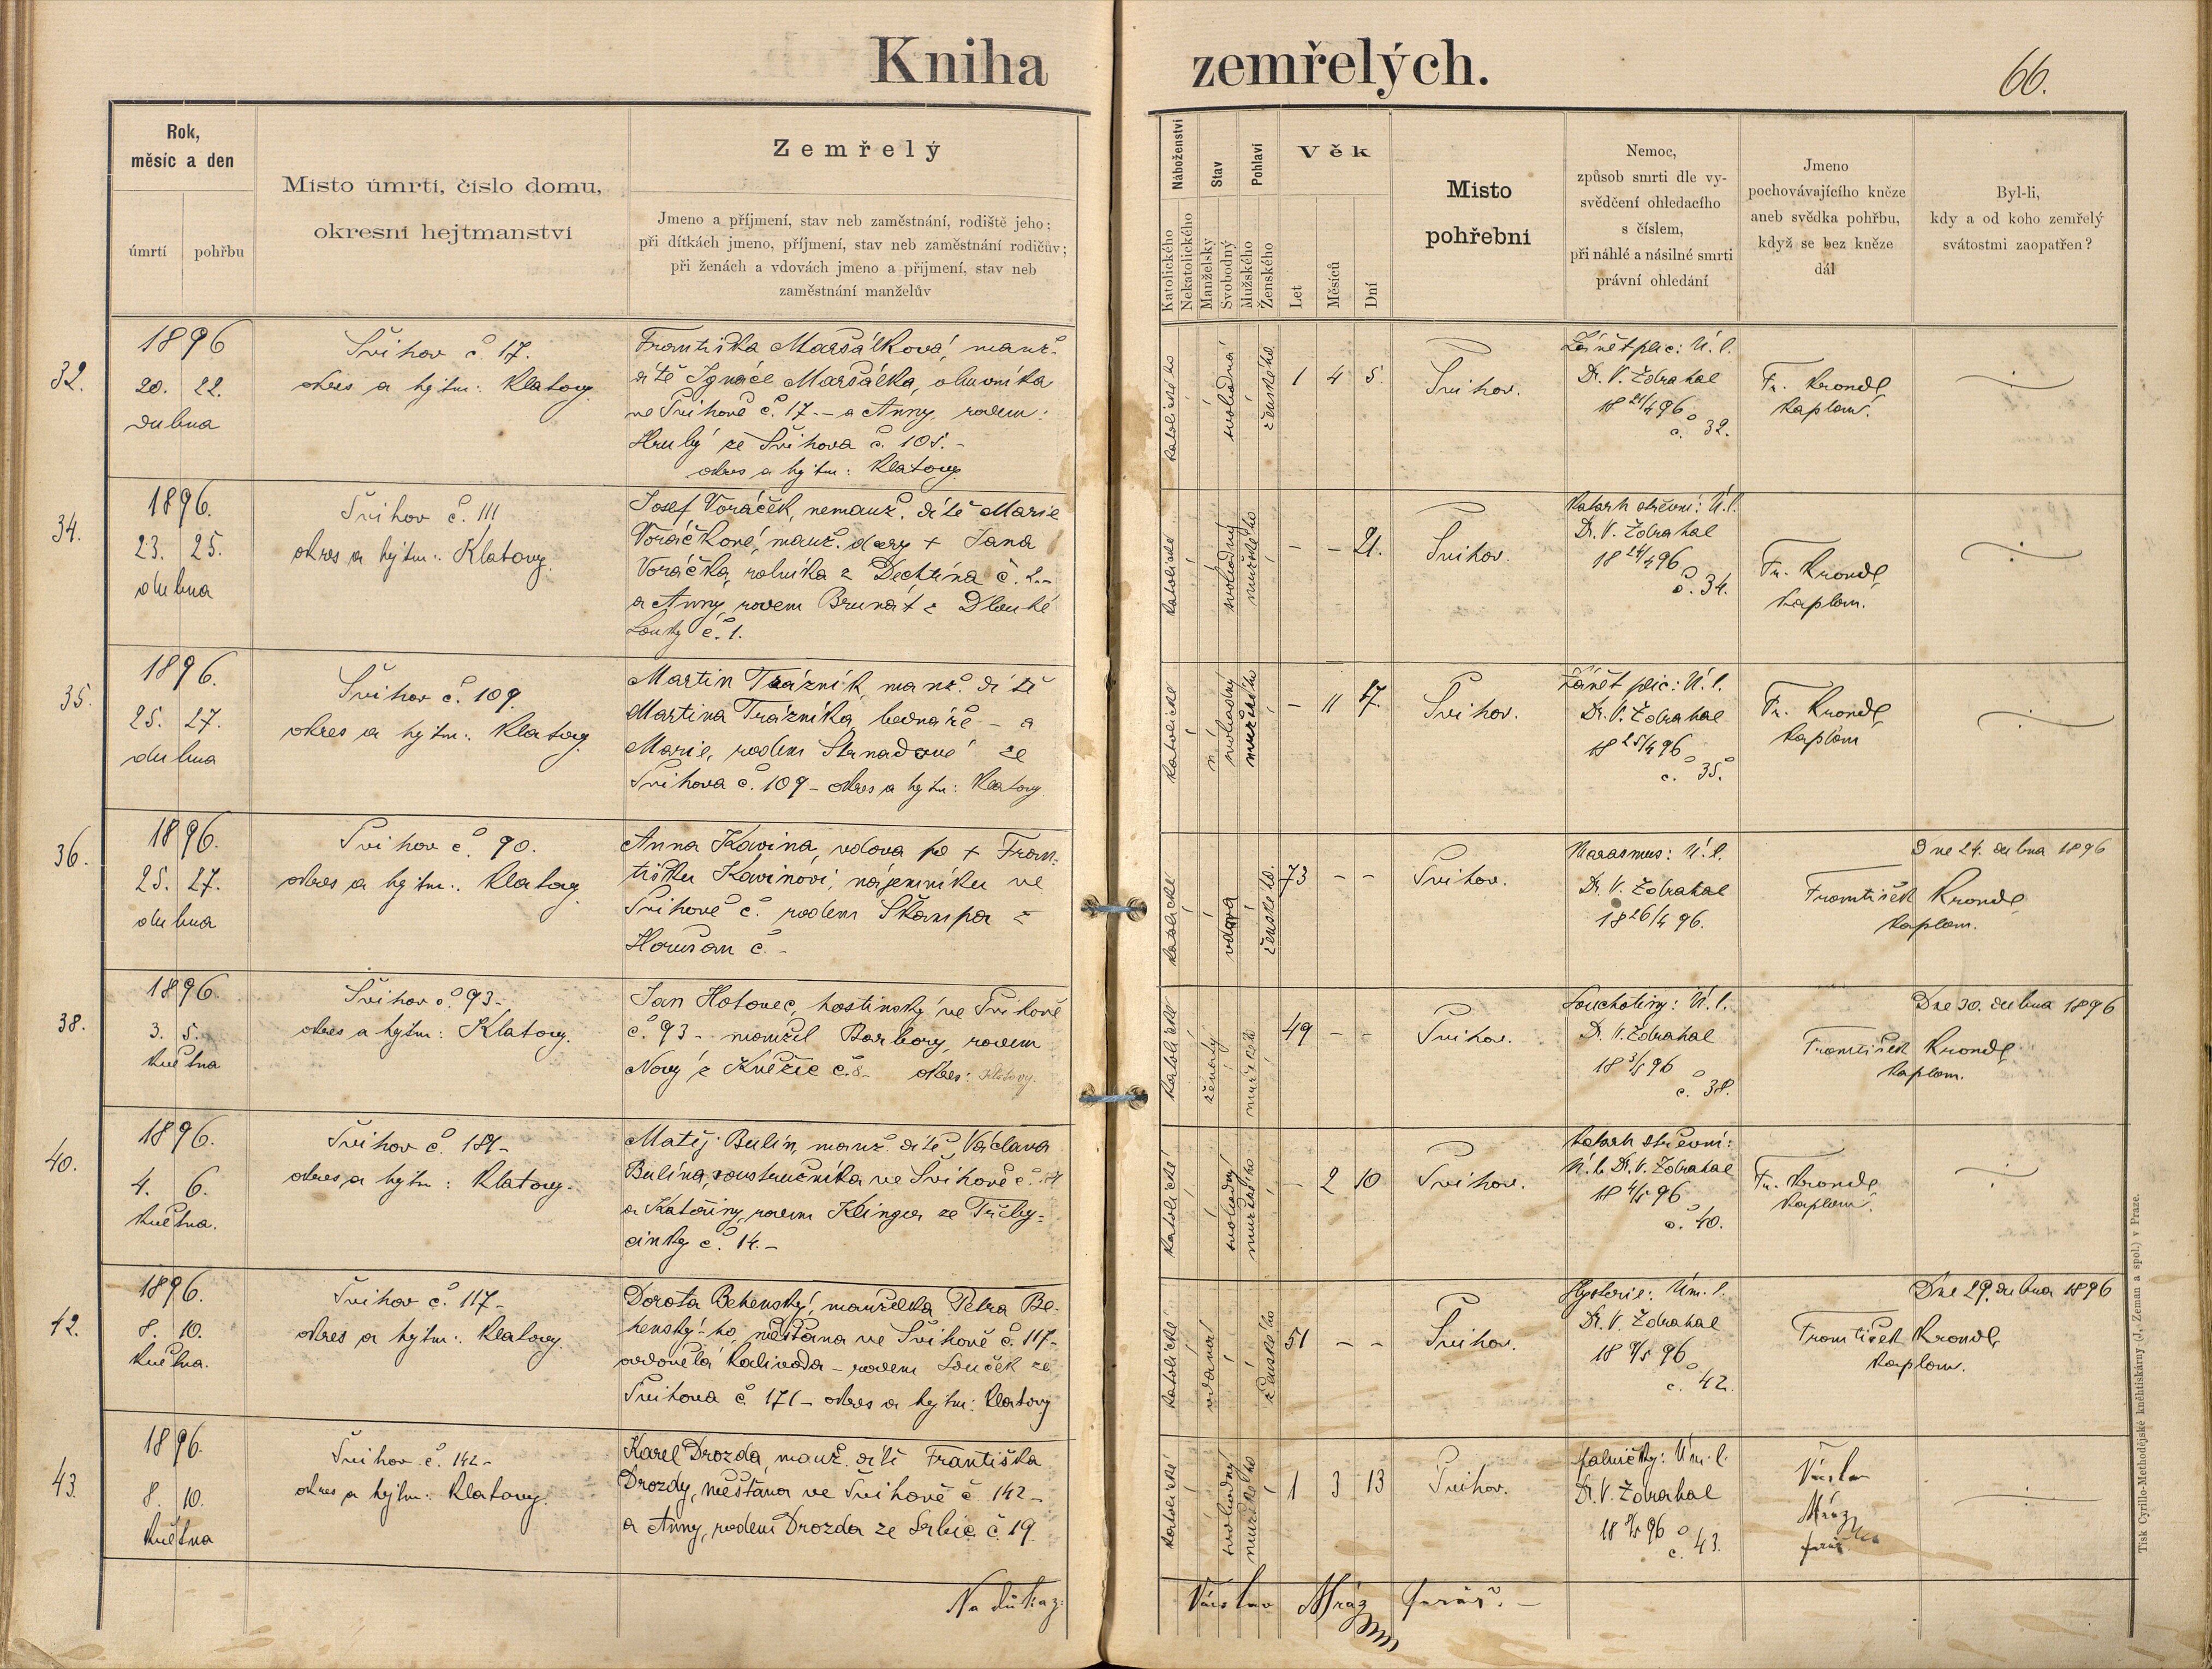 Kniha zemřelých.
66.
Rok,
měsíc a den
úmrtí
pohřbu
Místo úmrtí, číslo domu,
okresní hejtmanství
Zemřelý
Jmeno a příjmení, stav neb zaměstnání, rodiště jeho;
při dítkách jmeno, příjmení, stav neb zaměstnání rodičův;
při ženách a vdovách jmeno a příjmení, stav neb
zaměstnání manželův
Náboženství
Katolického
Nekatolického
Stav
Manželský
Svobodný
Pohlaví
Mužského
Ženského
Věk
Let
Měsíců
Dní
Místo
pohřební
Nemoc,
způsob smrti dle vy-
svědčení ohledacího
s číslem,
při náhlé a násilné smrti
právní ohledání
Jmeno
pochovávajícího kněze
aneb svědka pohřbu,
když se bez kněze
dál
Byl-li,
kdy a od koho zemřelý
svátostmi zaopatřen?
32.
1896
20. 22.
dubna
Švihov č. 17.
okres a hejtm: Klatovy
Františka Maršálková, manž.
dítě Ignáce Maršálka, obuvníka
ve Švihově č. 17. – a Anny, rodem:
Hrubý ze Švihova č. 105. –
okres a hejtm: Klatovy
katolického
svobodná
ženského
1 4 5
Švihov.
Zánět plic: Ú. l.
Dr. V. Zdrahal
18 21/4 96
č. 32.
Fr. Krondl,
kaplan.
34.
1896.
23. 25.
dubna
Švihov č. 111
okres a hejtm: Klatovy.
Josef Voráček, nemanž. dítě Marie
Voráčkové, manž. dcery + Jana
Voráčka, rolníka z Dechtína č. 2. –
a Anny, rodem Brunát z Dlouhé
Louky č. 1.
katolické
svobodný
mužského
– – 21.
Švihov.
Katarh střevní: Ú. l.
Dr. V. Zdrahal
18 24/4 96
č. 34.
Fr. Krondl,
kaplan.
35.
1896.
25. 27.
dubna
Švihov č. 109.
okres a hejtm: Klatovy
Martin Trázník, manž. dítě
Martina Trázníka, bednáře – a
Marie, rodem Strnadové ze
Švihova č. 109 – okres a hejtm: Klatovy
katolické
svobodný
mužského
– 11 17.
Švihov.
Zánět plic: Ú. l.
Dr. V. Zdrahal
18 25/4 96
č. 35.
Fr. Krondl,
kaplan
36.
1896.
25. 27.
dubna
Švihov č. 90.
okres a hejtm: Klatovy
Anna Kavina, vdova po + Fran-
tišku Kavinovi, nájemníku ve
Švihově č. rodem Škampa z
Horušan č. –
katolické
vdova
ženského
73 – –
Švihov.
Marasmus: Ú. l.
Dr. V. Zdrahal
18 26/4 96.
Dne 24. dubna 1896
František Krondl,
kaplan.
38.
1896.
3. 5.
května
Švihov č. 93 –
okres a hejtm: Klatovy.
Jan Hotovec, hostinský ve Švihově
č. 93 – manžel Barbory, rodem
Nový z Kněžic č. 8 – okres: Klatovy.
katolické
ženatý
mužského
49 – –
Švihov.
Souchotiny: Ú. l.
Dr. V. Zdrahal
18 3/5 96
č. 38.
Dne 30. dubna 1896
František Krondl,
kaplan.
40.
1896.
4. 6.
května.
Švihov č. 184 –
okres a hejtm: Klatovy.
Matěj Bulín, manž. dítě Václava
Bulína, soustružníka ve Švihově č. 184
a Kateřiny, rodem Klinger ze Třeby-
cinky č. 14. –
katolické
svobodný
mužského
– 2 10
Švihov.
Katarh střevní:
Ú. l. Dr. V. Zdrahal
18 4/5 96
č. 40.
Fr. Krondl,
kaplan.
42.
1896.
8. 10.
května.
Švihov č. 117 –
okres a hejtm: Klatovy.
Dorota Behenský, manželka Petra Be-
henský-ho, měšťana ve Švihově č. 117 –
ovdovělá Kalivoda – rodem Souček ze
Švihova č. 171 – okres a hejtm: Klatovy
katolické
vdaná
ženského
51 – –
Švihov.
Hysterie: Úm. l.
Dr. V. Zdrahal
18 9/5 96
č. 42.
Dne 29. dubna 1896
František Krondl,
kaplan.
43.
1896.
8. 10.
května
Švihov č. 142 –
okres a hejtm: Klatovy.
Karel Drozda, manž. dítě Františka
Drozdy, měšťana ve Švihově č. 142 –
a Anny, rodem Drozda ze Srbic č. 19.
katolické
svobodný
mužského
1 3 13
Švihov.
psotníčky: Úm. l.
Dr. V. Zdrahal
18 9/5 96
č. 43.
Václav
Mráz
farář
Na důkaz:
Václav Mráz farář. –
Tisk Cyrillo-Methodějské kněhtiskárny (J. Zeman a spol.) v Praze.